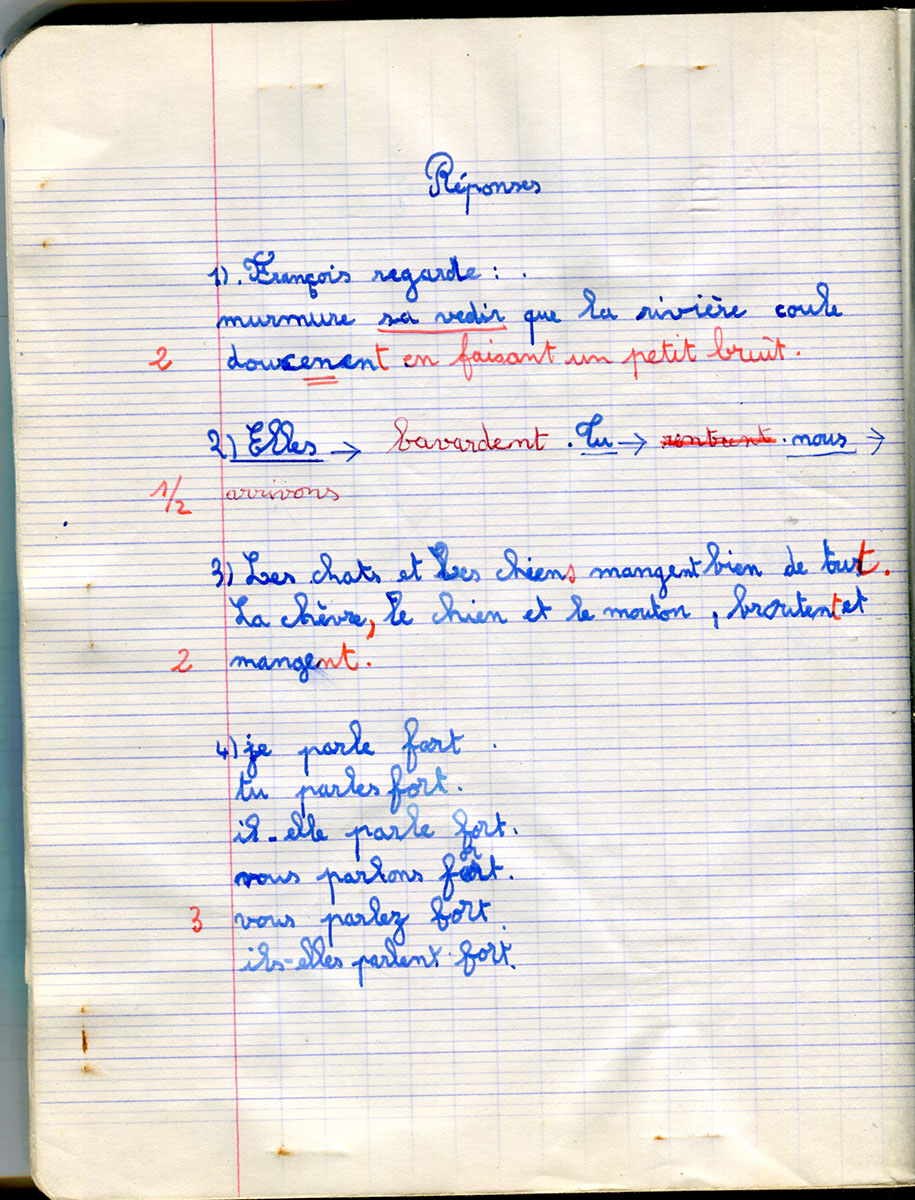 Réponses
1). François regarde : .
murmure sa vedir que la rivière coule
2 doucenent en faisant un petit bruit.
2) Elles → bavardent . Tu → rentrent . nous →
1/2 arrivons
3) Les chats et les chiens mangent bien de tout.
La chèvre, le chien et le mouton , broutent et
2 mangent.
4) je parle fort .
tu parles fort.
il - elle parle fort.
vous parlons fort.
3 vous parlez fort
ils-elles parlent fort.